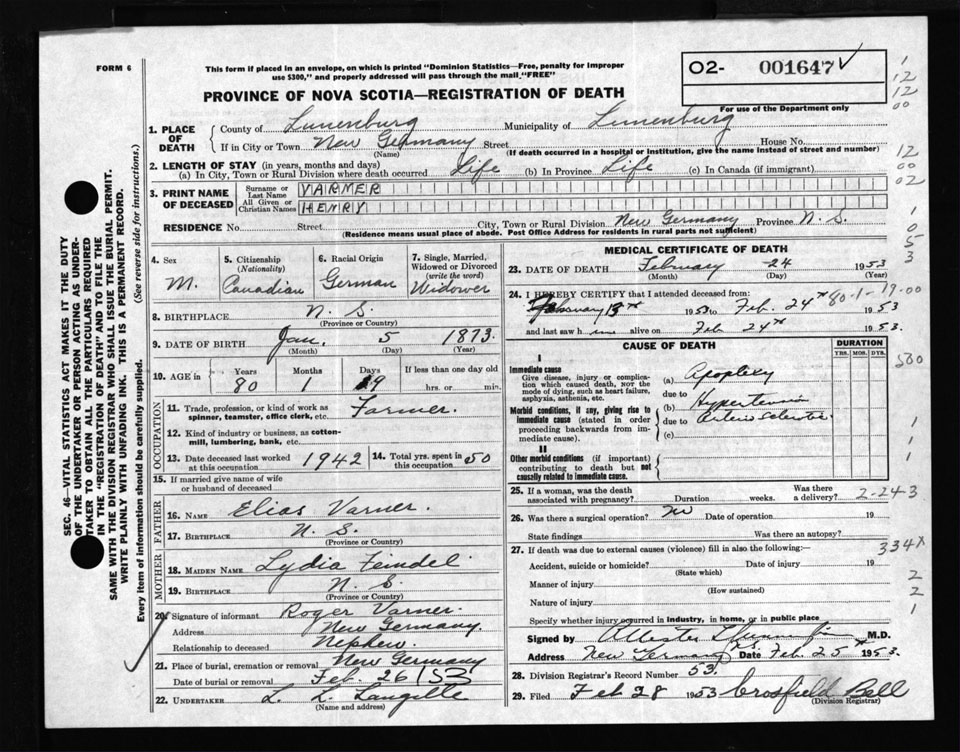 FORM 6
This form if placed in an envelope, on which is printed "Dominion Statistics—Free, penalty for improper
use $300," and properly addressed will pass through the mail "FREE"
PROVINCE OF NOVA SCOTIA—REGISTRATION OF DEATH
O2- 001647
For use of the Department only
1. PLACE OF DEATH
County of Lunenburg Municipality of Lunenburg
If in City or Town New Germany Street House No.
(Name) (If death occurred in a hospital or institution, give the name instead of street and number)
2. LENGTH OF STAY (in years, months and days)
(a) In City, Town or Rural Division where death occurred Life (b) In Province Life (c) In Canada (if immigrant)
3. PRINT NAME OF DECEASED
Surname or Last Name VARMER
All Given or Christian Names HENRY
RESIDENCE No. Street City, Town or Rural Division New Germany Province N. S.
(Residence means usual place of abode. Post Office Address for residents in rural parts not sufficient)
4. Sex
M.
5. Citizenship
(Nationality)
Canadian
6. Racial Origin
German
7. Single, Married,
Widowed or Divorced
(write the word)
Widower
8. BIRTHPLACE N. S.
(Province or Country)
9. DATE OF BIRTH Jan. 5 1873.
(Month) (Day) (Year)
10. AGE in Years Months Days If less than one day old
80 1 19 hrs. or min.
OCCUPATION
11. Trade, profession, or kind of work as
spinner, teamster, office clerk, etc. Farmer.
12. Kind of industry or business, as cotton-
mill, lumbering, bank, etc.
13. Date deceased last worked
at this occupation 1942
14. Total yrs. spent in
this occupation 50
15. If married give name of wife
or husband of deceased
FATHER
16. NAME Elias Varner.
17. BIRTHPLACE N. S.
(Province or Country)
MOTHER
18. MAIDEN NAME Lydia Feindel
19. BIRTHPLACE N. S.
(Province or Country)
20. Signature of informant Roger Varner.
Address New Germany.
Relationship to deceased Nephew.
21. Place of burial, cremation or removal New Germany
Date of burial or removal Feb. 26/53
22. UNDERTAKER L. L. Langille
(Name and address)
MEDICAL CERTIFICATE OF DEATH
23. DATE OF DEATH February 24 1953
(Month) (Day) (Year)
24. I HEREBY CERTIFY that I attended deceased from:
February 13th 1953 to Feb. 24th 1953
and last saw h im alive on Feb 24th 1953.
CAUSE OF DEATH
DURATION
YRS. MOS. DYS.
I
Immediate cause
Give disease, injury or complica-
tion which caused death, NOT the
mode of dying, such as heart failure,
asphyxia, asthenia, etc.
(a) Apoplexy
due to
Morbid conditions, if any, giving rise to
immediate cause (stated in order
proceeding backwards from im-
mediate cause).
(b) Hypertension
due to
(c)
II
Other morbid conditions (if important)
contributing to death but not
causally related to immediate cause.
25. If a woman, was the death
associated with pregnancy? Duration weeks. Was there
a delivery?
26. Was there a surgical operation? no Date of operation 19
State findings Was there an autopsy?
27. If death was due to external causes (violence) fill in also the following:—
Accident, suicide or homicide? Date of injury 19
(State which)
Manner of injury
(How sustained)
Nature of injury
Specify whether injury occurred in industry, in home, or in public place
Signed by M.D.
Address New Germany N.S. Date Feb. 25th 1953.
28. Division Registrar's Record Number 53.
29. Filed Feb 28 1953 Crossfield Bell
(Division Registrar)
SEC. 46 VITAL STATISTICS ACT MAKES IT THE DUTY
OF THE UNDERTAKER OR PERSON ACTING AS UNDER-
TAKER TO OBTAIN ALL THE PARTICULARS REQUIRED
IN THE "REGISTRATION OF DEATH" AND TO FILE THE
SAME WITH THE DIVISION REGISTRAR WHO SHALL ISSUE THE BURIAL PERMIT.
WRITE PLAINLY WITH UNFADING INK. THIS IS A PERMANENT RECORD.
Every item of information should be carefully supplied. (See reverse side for instructions.)
1
12
12
00
12
00
02
1
0
5
3
80-1-19-00
500
1
1
2-24-3
334X
2
2
1